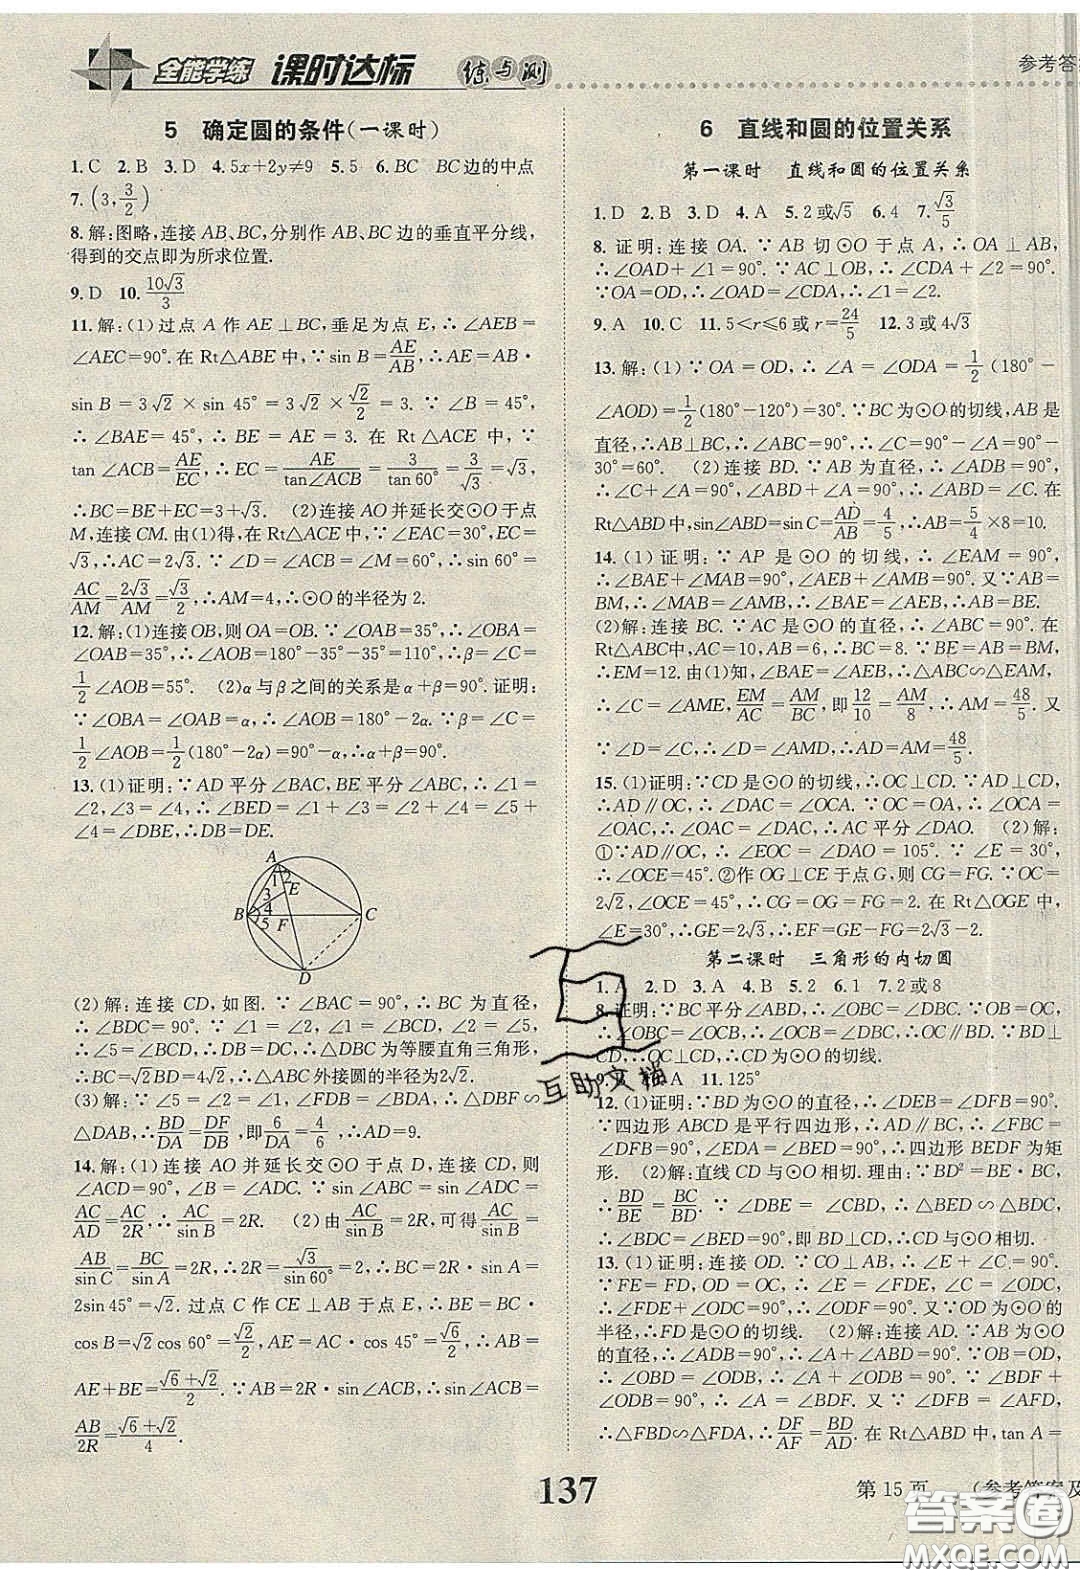 全能学练 课时达标 练与测
参考答案
5 确定圆的条件(一课时)
1.C 2.B 3.D 4.5x+2y≠9 5.5 6.BC BC边的中点
7.(3,3/2)
8.解:图略,连接AB、BC,分别作AB、BC边的垂直平分线,
得到的交点即为所求位置.
9.D 10.10√3/3
11.解:(1)过点A作AE⊥BC,垂足为点E,∴∠AEB=
∠AEC=90°.在Rt△ABE中,∵sin B=AE/AB,∴AE=AB·
sin B=3√2×sin 45°=3√2×√2/2=3.∵∠B=45°,
∴∠BAE=45°,∴BE=AE=3.在Rt△ACE中,∵
tan∠ACB=AE/EC,∴EC=AE/tan∠ACB=3/tan60°=3/√3=√3,
∴BC=BE+EC=3+√3. (2)连接AO并延长交⊙O于点
M,连接CM.由(1)得,在Rt△ACE中,∵∠EAC=30°,EC=
√3,∴AC=2√3.∵∠D=∠ACB=60°,∴sin∠D=sin60°=
AC/AM=2√3/AM=√3/2,∴AM=4,∴⊙O的半径为2.
12.解:(1)连接OB,则OA=OB.∵∠OAB=35°,∴∠OBA=
∠OAB=35°,∴∠AOB=180°-35°-35°=110°,∴β=∠C=
1/2∠AOB=55°. (2)α与β之间的关系是α+β=90°.证明:
∵∠OBA=∠OAB=α,∴∠AOB=180°-2α.∵β=∠C=
1/2∠AOB=1/2(180°-2α)=90°-α,∴α+β=90°.
13.(1)证明:∵AD平分∠BAC,BE平分∠ABC,∴∠1=
∠2,∠3=∠4,∴∠BED=∠1+∠3=∠2+∠4=∠5+
∠4=∠DBE,∴DB=DE.
A
1 2
3 E
B 4 C
5 F
D
(2)解:连接CD,如图.∵∠BAC=90°,∴BC为直径,
∴∠BDC=90°.∵∠1=∠2,∠2=∠5,
∴∠5=∠BCD,∴DB=DC,∴△DBC为等腰直角三角形,
∴BC=√2BD=4√2,∴△ABC外接圆的半径为2√2.
(3)解:∵∠5=∠2=∠1,∠FDB=∠BDA,∴△DBF∽
△DAB,∴BD/DA=DF/DB,即6/DA=4/6,∴DA=9.
14.解:(1)连接AO并延长交⊙O于点D,连接CD,则
∠ACD=90°,∠B=∠ADC.∵sin∠ABC=sin∠ADC=
AC/AD=AC/2R,∴AC/sin B=2R. (2)由AC/sin B=2R,可得AC/sin B=
AB/sin C=BC/sin A=2R,∴2R=√3/sin 60°=2,∴BC=2R·sin A=
2sin 45°=√2.过点C作CE⊥AB于点E,∴BE=BC·
cos B=√2cos 60°=√2/2,AE=AC·cos 45°=√6/2,∴AB=
AE+BE=(√6+√2)/2.∵AB=2R·sin∠ACB,∴sin∠ACB=
AB/2R=(√6+√2)/4.
6 直线和圆的位置关系
第一课时 直线和圆的位置关系
1.D 2.B 3.D 4.A 5.2或√5 6.4 7.√3/5
8.证明:连接OA.∵AB切⊙O于点A,∴OA⊥AB,
∴∠OAD+∠1=90°.∵AC⊥OB,∴∠CDA+∠2=90°.
∵OA=OD,∴∠OAD=∠CDA,∴∠1=∠2.
9.A 10.C 11.5<r≤6或r=24/5 12.3或4√3
13.解:(1)∵OA=OD,∴∠A=∠ODA=1/2(180°-
∠AOD)=1/2(180°-120°)=30°.∵BC为⊙O的切线,AB是
直径,∴AB⊥BC,∴∠ABC=90°,∴∠C=90°-∠A=90°-
30°=60°. (2)连接BD.∵AB为直径,∴∠ADB=90°,
∴∠C+∠A=90°,∠ABD+∠A=90°,∴∠ABD=∠C.在
Rt△ABD中,sin∠ABD=sin C=AD/AB=4/5,∴AB=5/4×8=10.
14.(1)证明:∵AP是⊙O的切线,∴∠EAM=90°,
∴∠BAE+∠MAB=90°,∠AEB+∠AMB=90°.又∵AB=
BM,∴∠MAB=∠AMB,∴∠BAE=∠AEB,∴AB=BE.
(2)解:连接BC.∵AC是⊙O的直径,∴∠ABC=90°.在
Rt△ABC中,AC=10,AB=6,∴BC=8.∵BE=AB=BM,
∴EM=12.由(1)知,∠BAE=∠AEB,∴△ABC∽△EAM,
∴∠C=∠AME,EM/AC=AM/BC,即12/10=AM/8,∴AM=48/5.又
∵∠D=∠C,∴∠D=∠AMD,∴AD=AM=48/5.
15.(1)证明:∵CD是⊙O的切线,∴OC⊥CD.∵AD⊥CD,
∴AD∥OC,∴∠DAC=∠OCA.∵OC=OA,∴∠OCA=
∠OAC,∴∠OAC=∠DAC,∴AC平分∠DAO. (2)解:
①∵AD∥OC,∴∠EOC=∠DAO=105°.∵∠E=30°,
∴∠OCE=45°.②作OG⊥CE于点G,则CG=FG.∵OC=
2√2,∠OCE=45°,∴CG=OG=FG=2.在Rt△OGE中,
∠E=30°,∴GE=2√3,∴EF=GE-FG=2√3-2.
第二课时 三角形的内切圆
1.A 2.D 3.A 4.B 5.2 6.1 7.2或8
8.证明:∵BC平分∠ABD,∴∠OBC=∠DBC.∵OB=OC,
∴∠OBC=∠OCB,∴∠OCB=∠DBC,∴OC∥BD.∵BD⊥
CD,∴OC⊥CD,∴CD为⊙O的切线.
9.B 10.A 11.125°
12.(1)证明:∵BD为⊙O的直径,∴∠DEB=∠DFB=90°.
∵四边形ABCD是平行四边形,∴AD∥BC,∴∠FBC=
∠DFB=90°,∠EDA=∠BED=90°,∴四边形BEDF为矩
形. (2)解:直线CD与⊙O相切.理由:∵BD²=BE·BC,
∴BD/BE=BC/BD.∵∠DBE=∠CBD,∴△BED∽△BDC,
∴∠BDC=∠BED=90°,即BD⊥CD,∴CD与⊙O相切.
13.(1)证明:连接OD.∵CO⊥AB,∴∠E+∠C=90°.
∵FE=FD,OD=OC,∴∠E=∠FDE,∠C=∠ODC,
∴∠FDE+∠ODC=90°,∴∠ODF=90°.又∵OD为⊙O的
半径,∴FD是⊙O的切线. (2)解:连接AD.∵AB为⊙O
的直径,∴∠ADB=90°,∴∠A+∠ABD=90°.∵OB=OD,
∴∠OBD=∠ODB,∴∠A+∠ODB=90°.∵∠BDF+
∠ODB=90°,∴∠A=∠BDF.又∵∠DFB=∠AFD,
∴△FBD∽△FDA,∴DF/AF=BD/AD.在Rt△ABD中,tan A=
互助文档
137
第15页 (参考答案及
答案圈
MXQE.COM